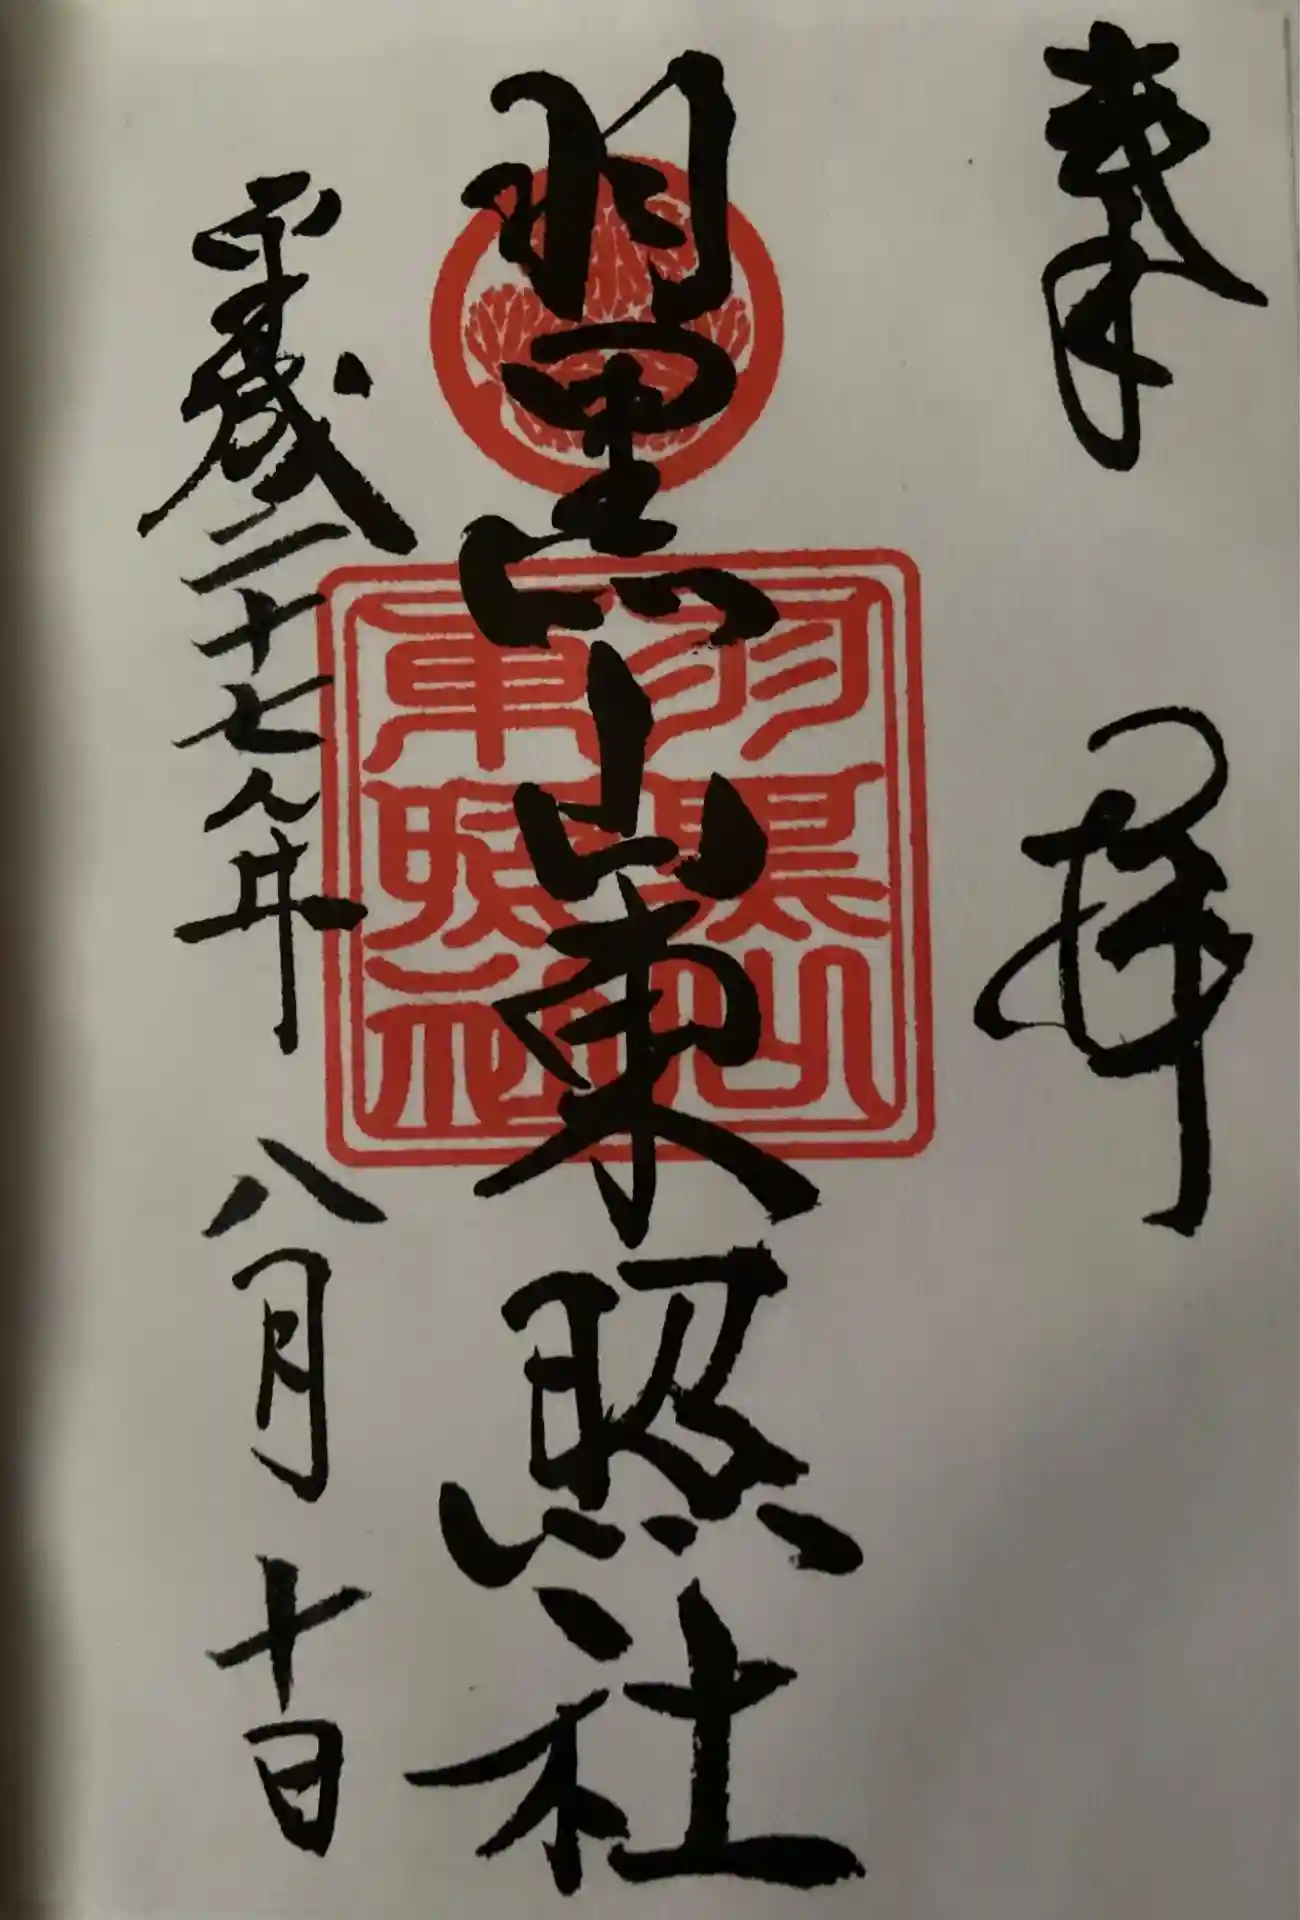 奉拝
羽黒山東照社
羽黒山
東照社
平成二十七年八月十日